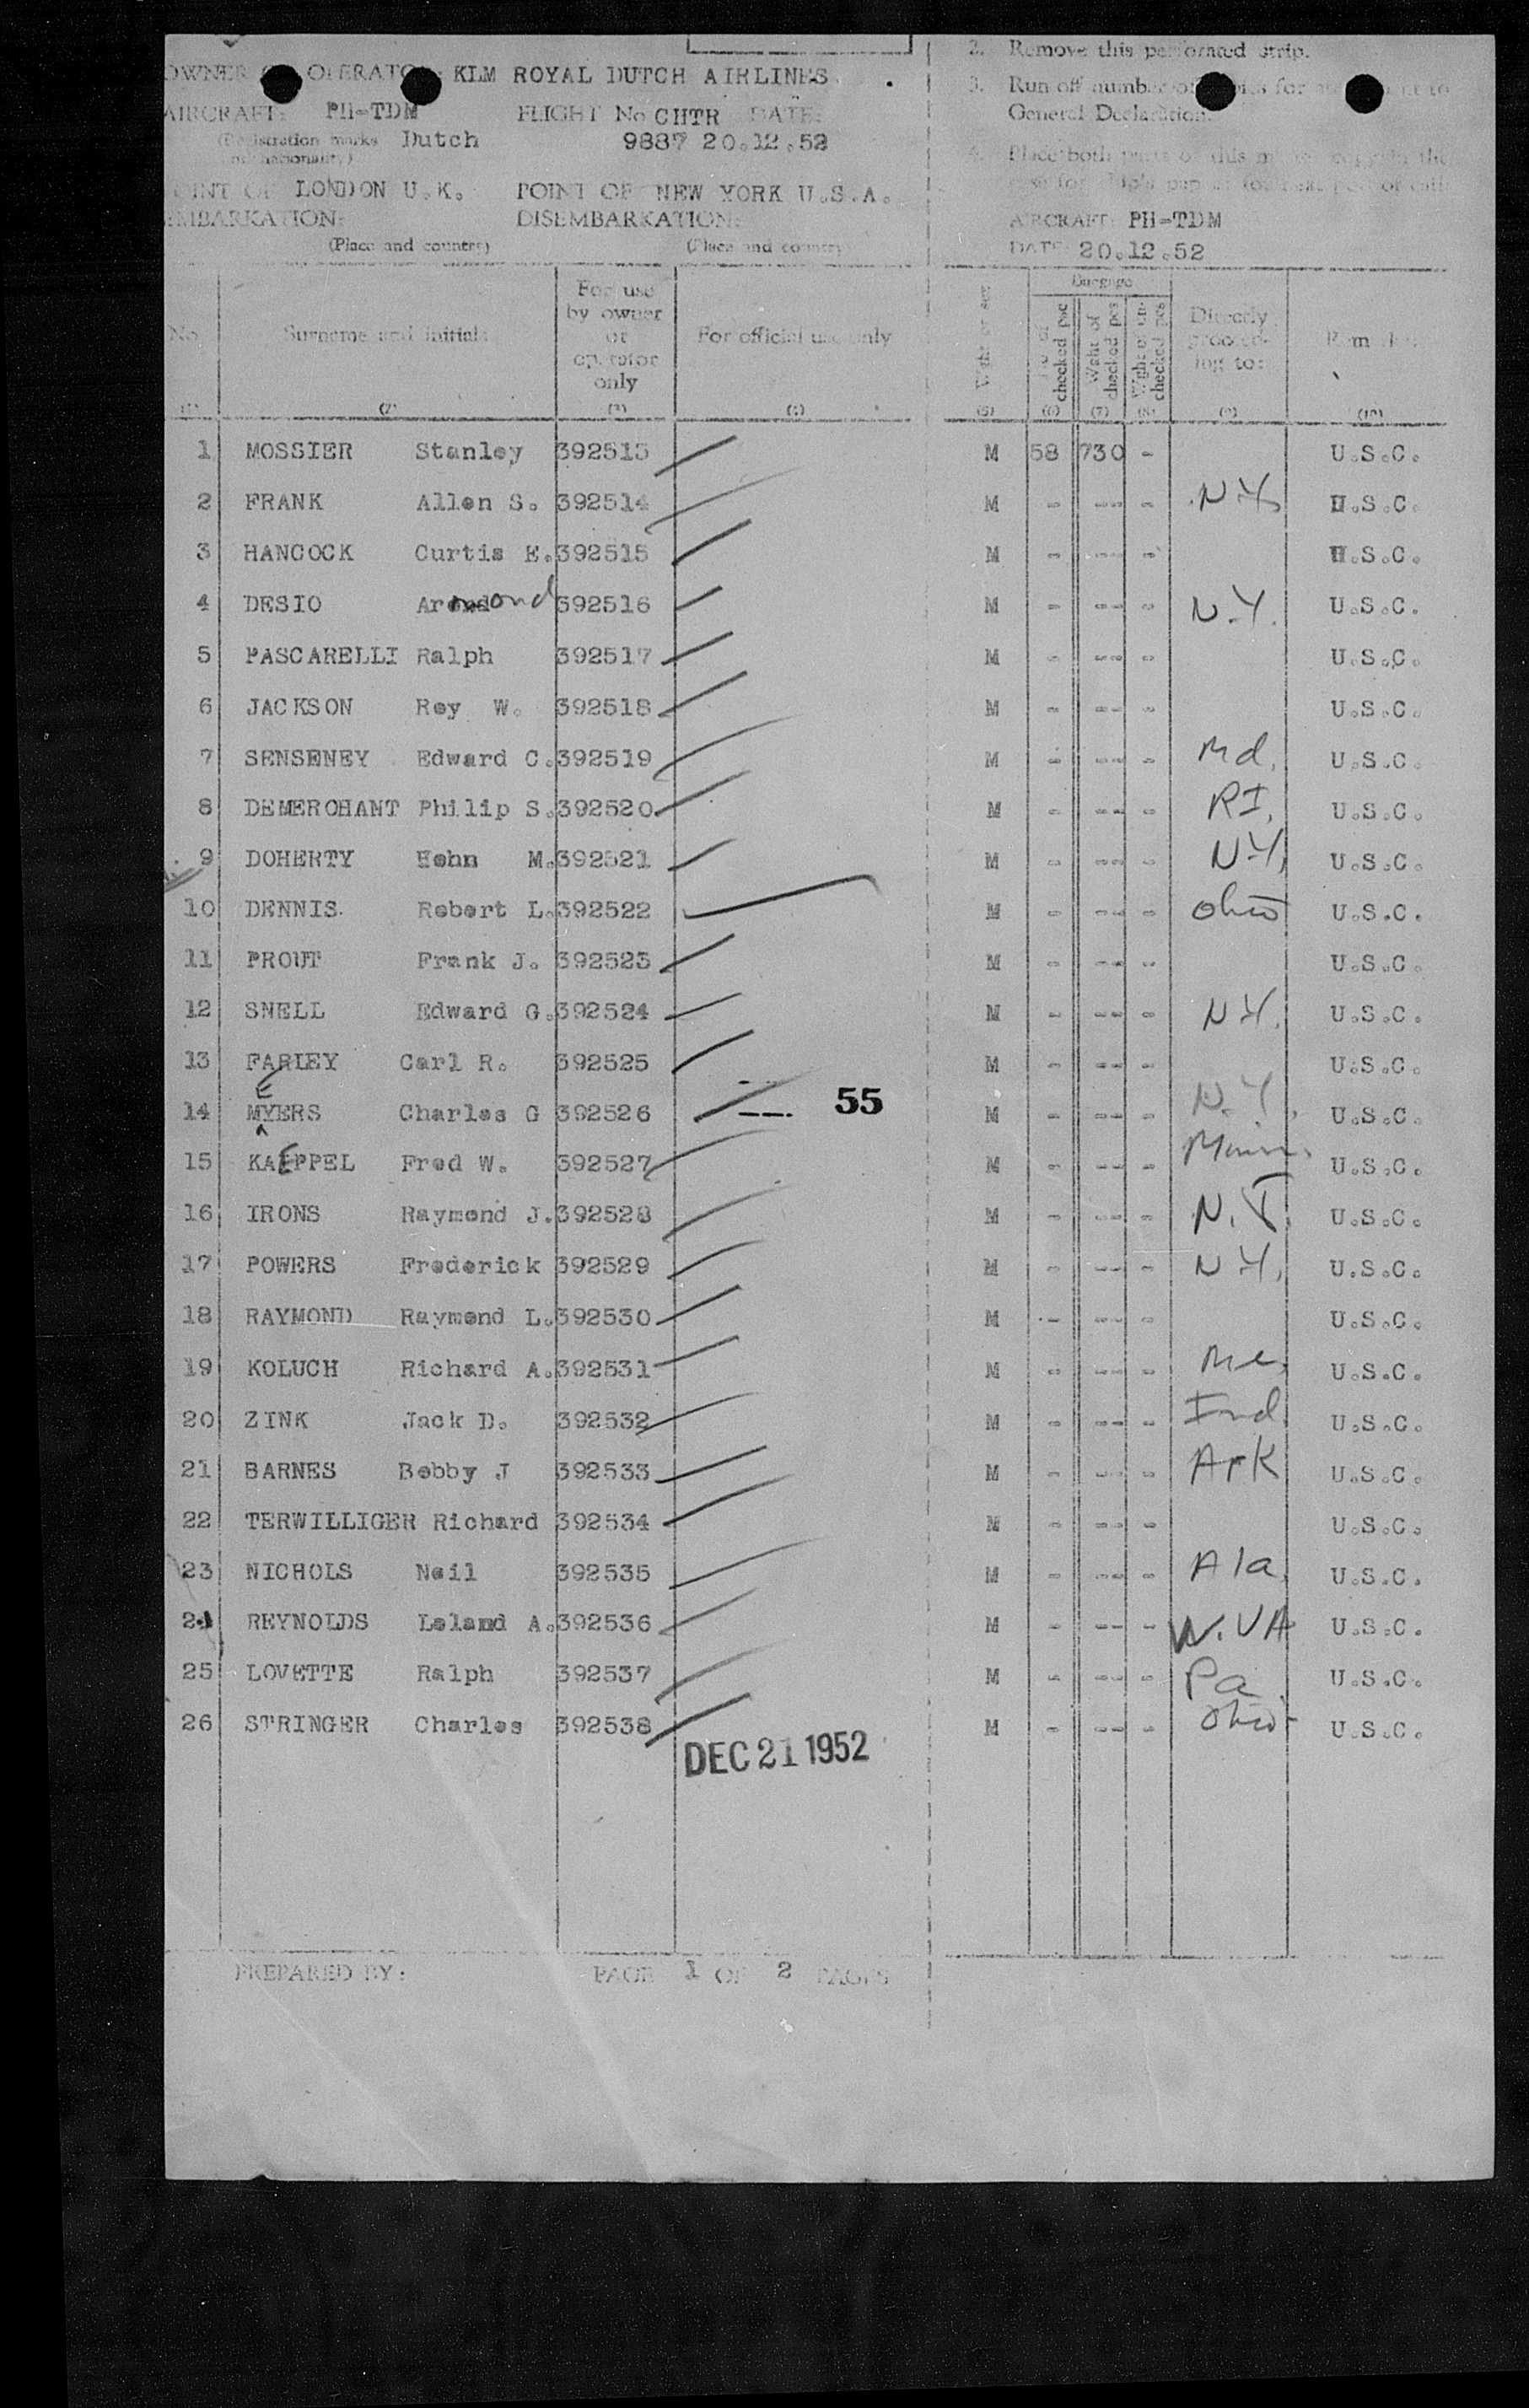 OWNER OR OPERATOR: KLM ROYAL DUTCH AIRLINES
AIRCRAFT: PH-TDM FLIGHT No CHTR DATE:
(Registration marks Dutch 9887 20.12.52
and nationality)
POINT OF LONDON U.K. POINT OF NEW YORK U.S.A.
EMBARKATION: DISEMBARKATION:
(Place and country) (Place and country)
2. Remove this perforated strip.
3. Run off number of for
General Declaration.
4. Place both parts of this
AIRCRAFT: PH-TDM
DATE: 20.12.52
No Surname and initials For use by owner or operator only For official use only
checked pcs Wght of checked pcs Wght of un-checked pcs Baggage Directly proceed-ing to: Remarks
(1) (2) (3) (4) (5) (6) (7) (8) (9) (10)
1 MOSSIER Stanley 392513 M 58 730 - U.S.C.
2 FRANK Allen S. 392514 M - -- - N.Y. U.S.C.
3 HANCOCK Curtis E. 392515 M - -- - U.S.C.
4 DESIO Armond 392516 M - -- - N.Y. U.S.C.
5 PASCARELLI Ralph 392517 M - -- - U.S.C.
6 JACKSON Roy W. 392518 M - -- - U.S.C.
7 SENSENEY Edward C. 392519 M - -- - Md. U.S.C.
8 DEMERCHANT Philip S. 392520 M - -- - RI. U.S.C.
9 DOHERTY Hohn M. 392521 M - -- - N.Y. U.S.C.
10 DENNIS Robert L. 392522 M - -- - Ohio U.S.C.
11 PROUT Frank J. 392523 M - -- - U.S.C.
12 SNELL Edward G. 392524 M - -- - N.Y. U.S.C.
13 FARLEY Carl R. 392525 M - -- - U.S.C.
E
14 MYERS Charles G 392526 55 M - -- - N.Y. U.S.C.
15 KAEPPEL Fred W. 392527 M - -- - Minn. U.S.C.
16 IRONS Raymond J. 392528 M - -- - N.J. U.S.C.
17 POWERS Frederick 392529 M - -- - N.Y. U.S.C.
18 RAYMOND Raymond L. 392530 M - -- - U.S.C.
19 KOLUCH Richard A. 392531 M - -- - Me. U.S.C.
20 ZINK Jack D. 392532 M - -- - Ind. U.S.C.
21 BARNES Bobby J 392533 M - -- - Ark U.S.C.
22 TERWILLIGER Richard 392534 M - -- - U.S.C.
23 NICHOLS Neil 392535 M - -- - Ala. U.S.C.
24 REYNOLDS Leland A. 392536 M - -- - W.VA U.S.C.
25 LOVETTE Ralph 392537 M - -- - Pa U.S.C.
26 STRINGER Charles 392538 M - -- - Ohio U.S.C.
DEC 21 1952
PREPARED BY: PAGE 1 OF 2 PAGES